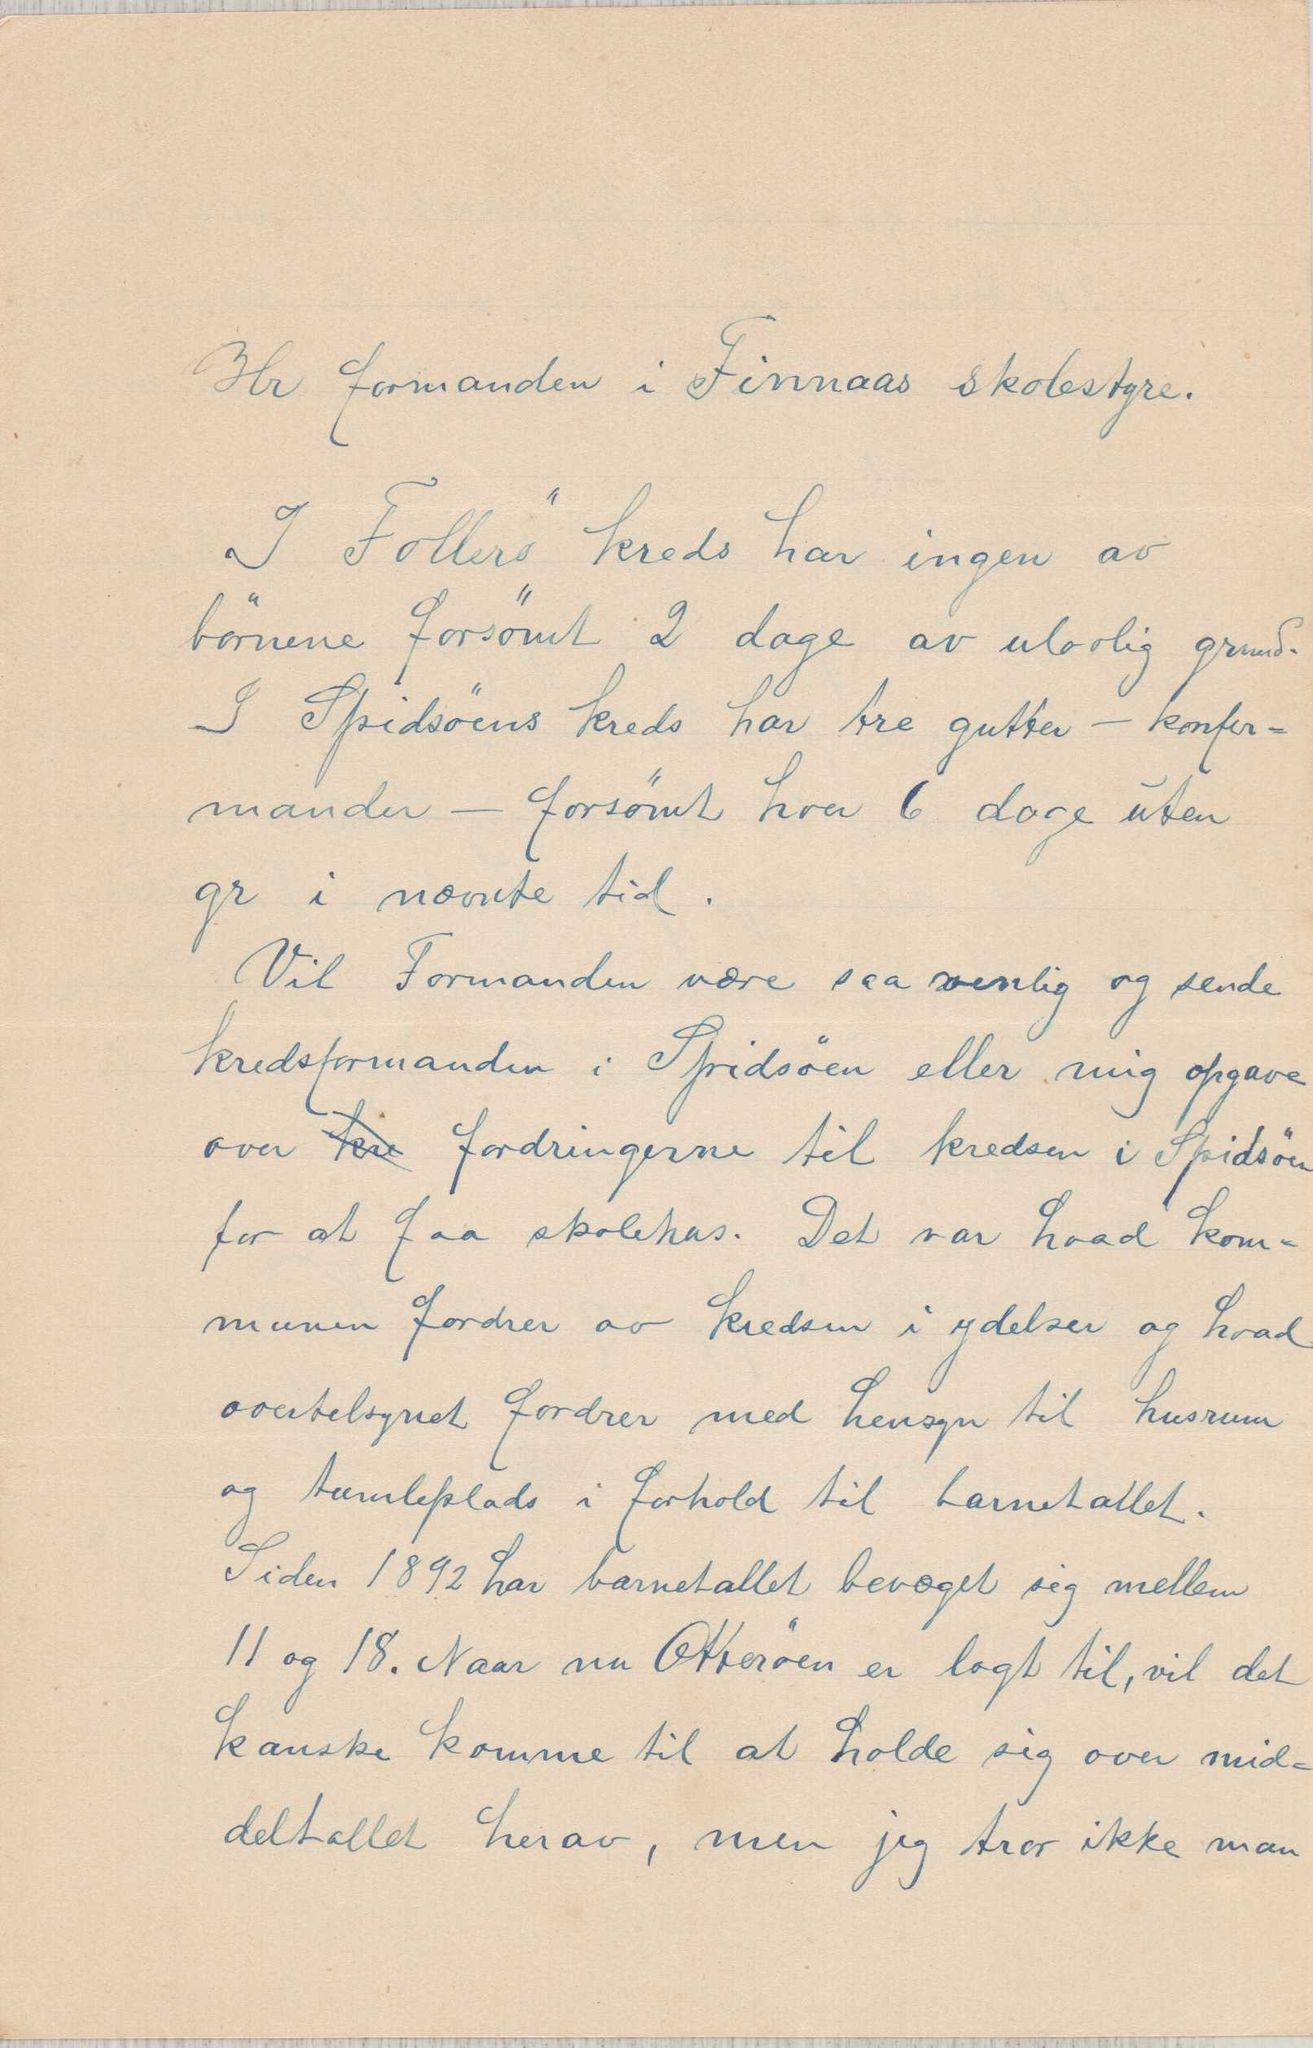 Hr formanden i Finnaas skolestyre.
I Follerö kreds har ingen av
börnene forsömt 2 dage av ulovlig grund.
I Spidsöens kreds har tre gutter – konfer=
mander – forsömt hver 6 dage uten
gr i nævnte tid.
Vil Formanden være saa venlig og sende
kredsformanden i Spidsöen eller mig opgave
over kre fordringerne til kredsen i Spidsöen
for at faa skolehus. Det var hvad kom=
munen fordrer av kredsen i ydelser og hvad
overtelsynet fordrer med hensyn til husrum
og tumleplads i forhold til barnetallet.
Siden 1892 har barnetallet bevæget sig mellem
11 og 18. Naar nu Otteröen er lagt til, vil det
kanske komme til at holde sig over mid=
deltallet herav, men jeg tror ikke man